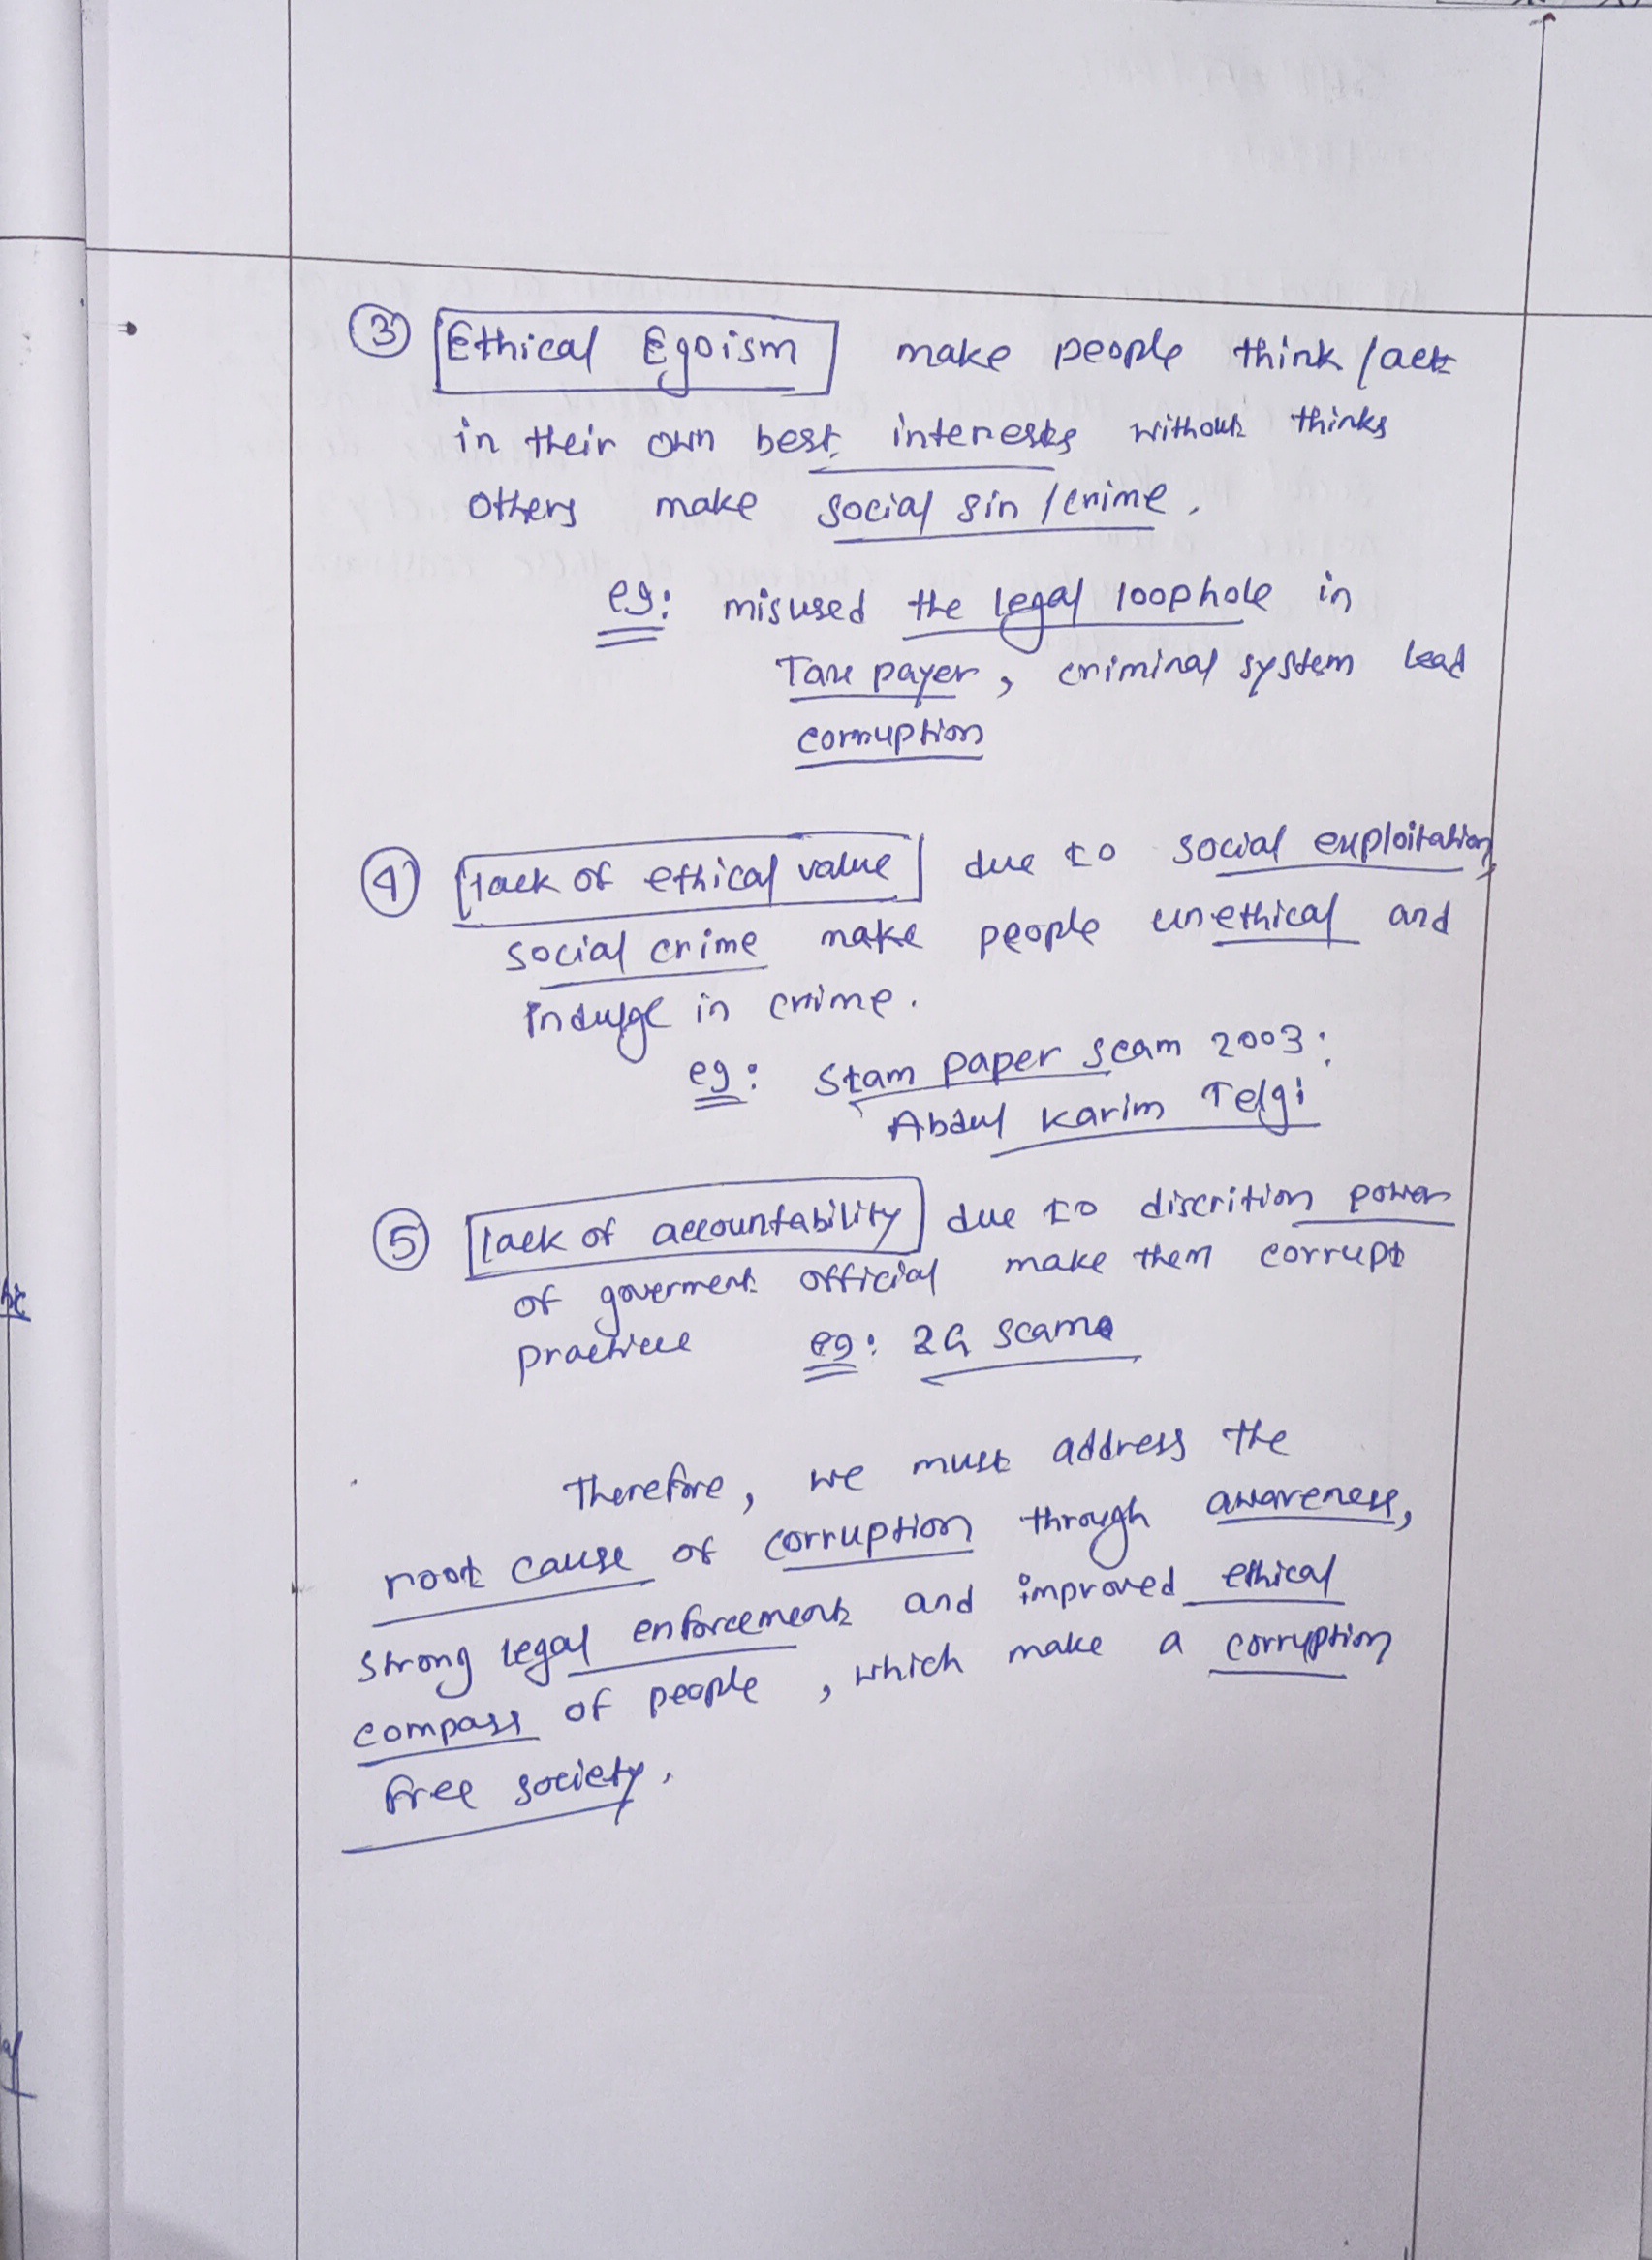 ③ Ethical Egoism make people think/act
in their own best interests without thinks
others make social sin/crime.
eg: misused the legal loophole in
Tax payer, criminal system lead
corruption
④ lack of ethical value due to social exploitation,
social crime make people unethical and
indulge in crime.
eg: Stam paper scam 2003:
Abdul Karim Telgi
⑤ lack of accountability due to discrition power
of goverment official make them corrupt
practice eg: 2G scam
Therefore, we must address the
root cause of corruption through awareness,
strong legal enforcement and improved ethical
compass of people, which make a corruption
free society.